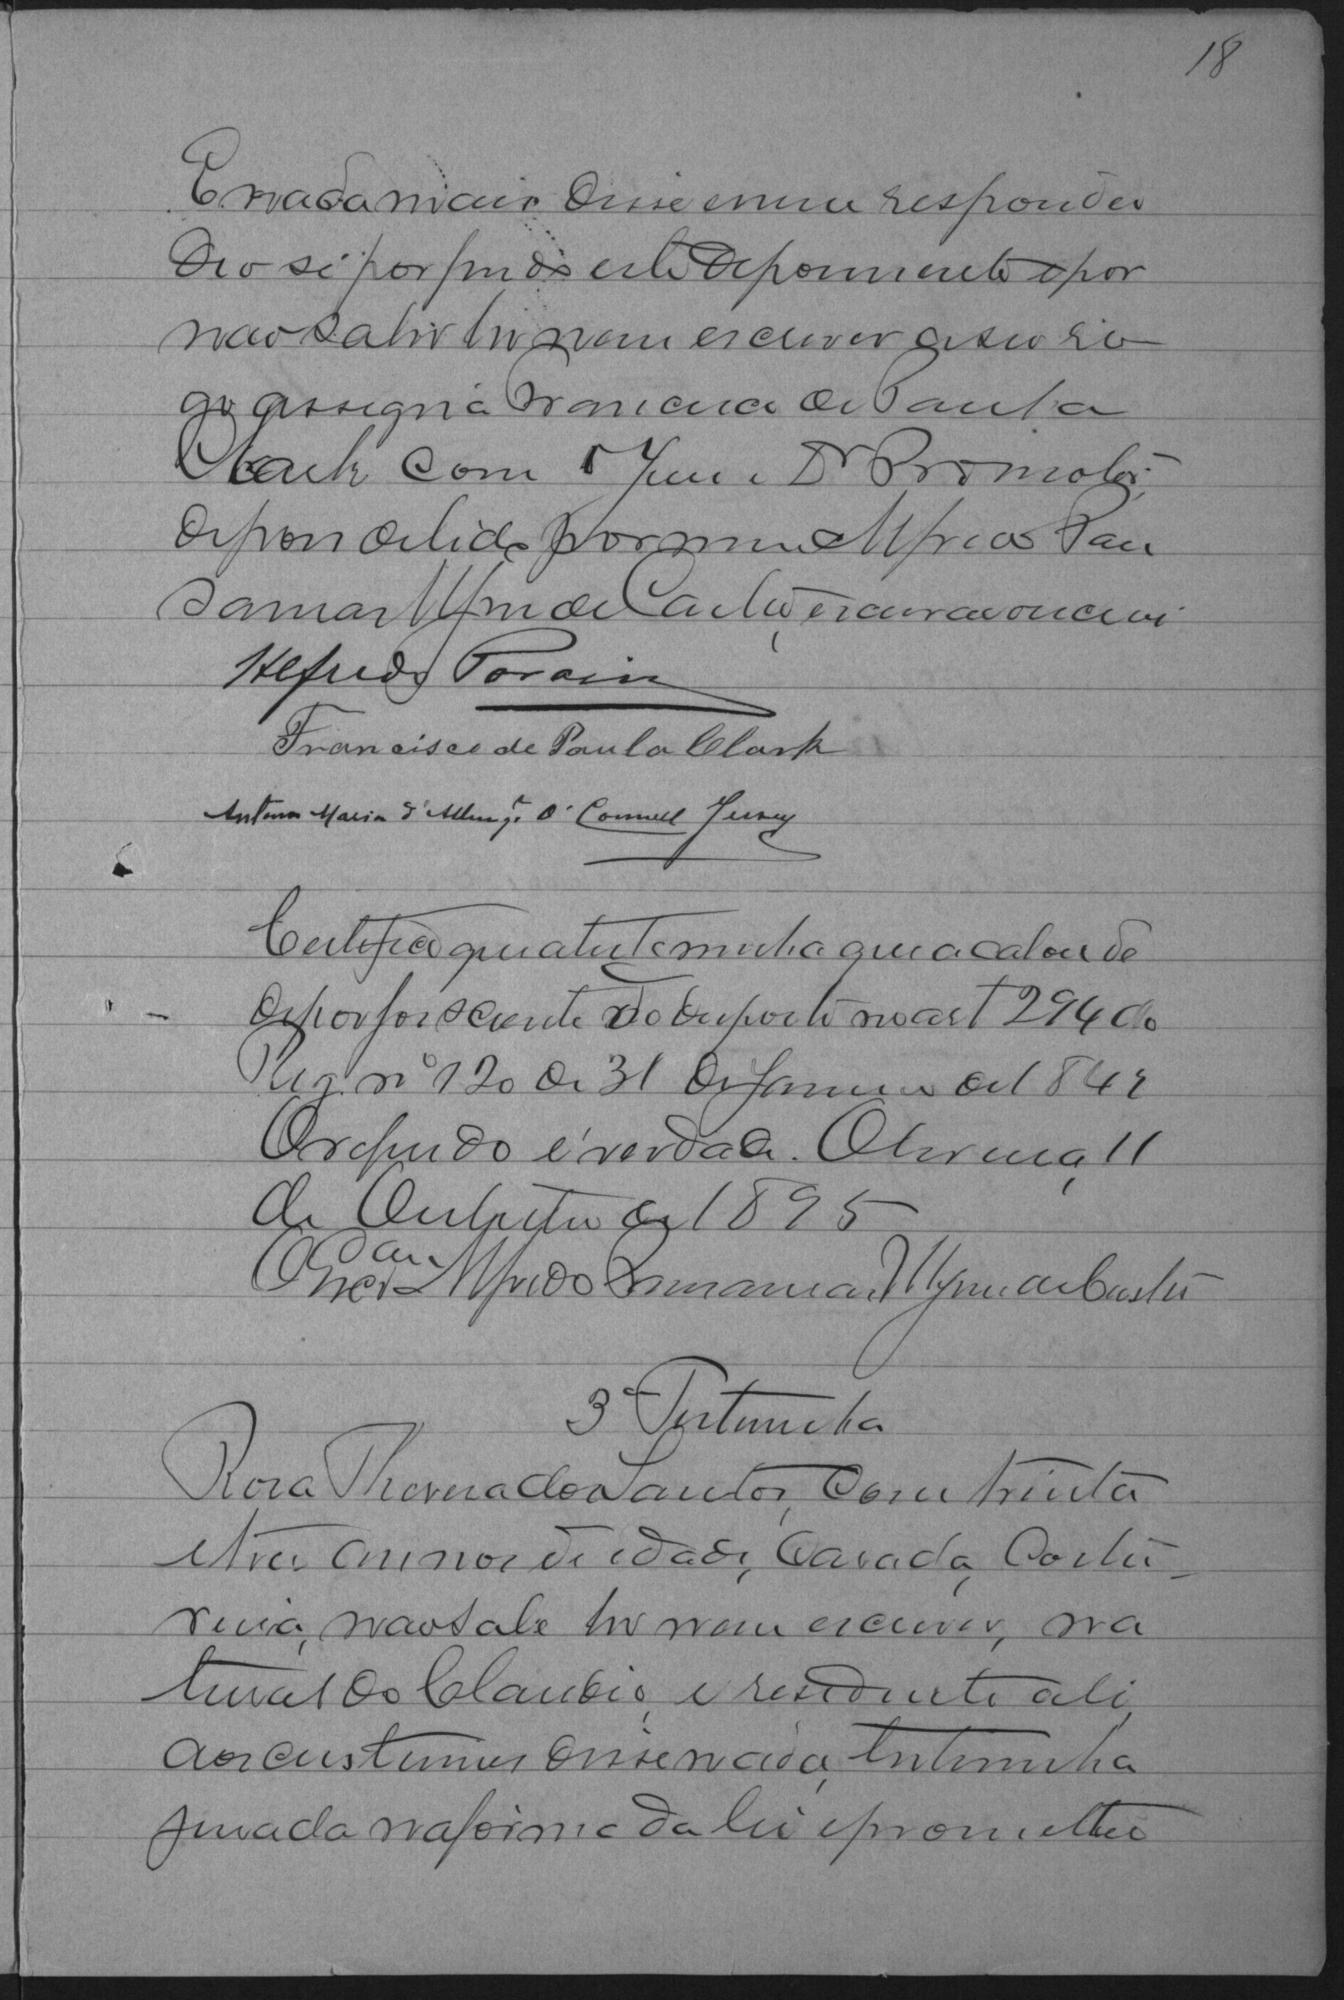 18
E nada mais disse nem respondeu
deo se por findo este depoimento e por
nao saber ler nem escrever a seu ro
go assigna Francisco de Paula
Clark com o Juiz e Dr Promotor,
depois de lido por mim Alfredo
de Castro, escrivao o escrevi
Alfredo
Francisco de Paula Clark
Antonio Maria d' O' Connell Jersey
Certifico que a testeminha que acabou de
depor foi sciente do disposto no art 294 do
Reg. nº 120 de 31 de Janeiro de 1842
O referido é verdade. Oliveira, 11
de Outubro de 1895
O Escrivão Alfredo de Castro
3ª Testeminha
Rosa Thereza dos Santos, com trinta
e tres annos de idade, casada, Costu-
reira, nao sabe ler nem escrever, na
tural do Claudio, e residente ali,
aos custumes disse nada, testeminha
jurada na forma da lei e prometteo